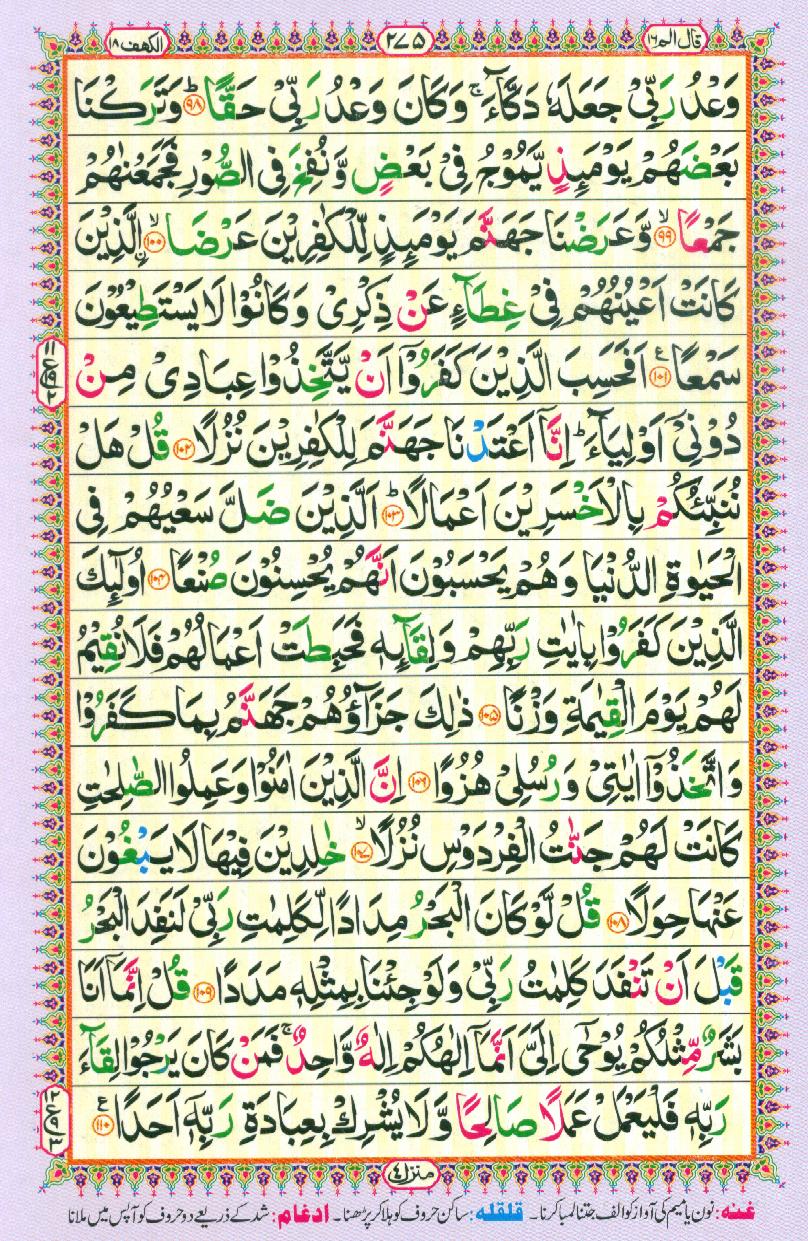 قال الم ١٦
٢٧٥
الكهف ١٨
وَعْدُ رَبِّىْ جَعَلَهٗ دَكَّآءَ ۚ وَكَانَ وَعْدُ رَبِّىْ حَقًّا ؕ ﴿٩٨﴾ وَتَرَكْنَا
بَعْضَهُمْ يَوْمَٮِٕذٍ يَّمُوْجُ فِىْ بَعْضٍ وَّنُفِخَ فِى الصُّوْرِ فَجَمَعْنٰهُمْ
جَمْعًا ۙ ﴿٩٩﴾ وَّعَرَضْنَا جَهَنَّمَ يَوْمَٮِٕذٍ لِّلْكٰفِرِيْنَ عَرْضَا ۙ ﴿١٠٠﴾ ۨالَّذِيْنَ
كَانَتْ اَعْيُنُهُمْ فِىْ غِطَآءٍ عَنْ ذِكْرِىْ وَكَانُوْا لَا يَسْتَطِيْعُوْنَ
سَمْعًا ﴿١٠١﴾ ع اَفَحَسِبَ الَّذِيْنَ كَفَرُوْٓا اَنْ يَّتَّخِذُوْا عِبَادِىْ مِنْ
دُوْنِىْٓ اَوْلِيَآءَ ؕ اِنَّآ اَعْتَدْنَا جَهَنَّمَ لِلْكٰفِرِيْنَ نُزُلًا ﴿١٠٢﴾ قُلْ هَلْ
نُنَبِّئُكُمْ بِالْاَخْسَرِيْنَ اَعْمَالًا ؕ ﴿١٠٣﴾ اَلَّذِيْنَ ضَلَّ سَعْيُهُمْ فِى
الْحَيٰوةِ الدُّنْيَا وَهُمْ يَحْسَبُوْنَ اَنَّهُمْ يُحْسِنُوْنَ صُنْعًا ﴿١٠٤﴾ اُولٰٓٮِٕكَ
الَّذِيْنَ كَفَرُوْا بِاٰيٰتِ رَبِّهِمْ وَلِقَآٮِٕهٖ فَحَبِطَتْ اَعْمَالُهُمْ فَلَا نُقِيْمُ
لَهُمْ يَوْمَ الْقِيٰمَةِ وَزْنًا ﴿١٠٥﴾ ذٰلِكَ جَزَآؤُهُمْ جَهَنَّمُ بِمَا كَفَرُوْا
وَاتَّخَذُوْٓا اٰيٰتِىْ وَرُسُلِىْ هُزُوًا ﴿١٠٦﴾ اِنَّ الَّذِيْنَ اٰمَنُوْا وَعَمِلُوا الصّٰلِحٰتِ
كَانَتْ لَهُمْ جَنّٰتُ الْفِرْدَوْسِ نُزُلًا ۙ ﴿١٠٧﴾ خٰلِدِيْنَ فِيْهَا لَا يَبْغُوْنَ
عَنْهَا حِوَلًا ﴿١٠٨﴾ قُلْ لَّوْ كَانَ الْبَحْرُ مِدَادًا لِّكَلِمٰتِ رَبِّىْ لَنَفِدَ الْبَحْرُ
قَبْلَ اَنْ تَنْفَدَ كَلِمٰتُ رَبِّىْ وَلَوْ جِئْنَا بِمِثْلِهٖ مَدَدًا ﴿١٠٩﴾ قُلْ اِنَّمَآ اَنَا
بَشَرٌ مِّثْلُكُمْ يُوْحٰٓى اِلَىَّ اَنَّمَآ اِلٰهُكُمْ اِلٰهٌ وَّاحِدٌ ۚ فَمَنْ كَانَ يَرْجُوْا لِقَآءَ
رَبِّهٖ فَلْيَعْمَلْ عَمَلًا صَالِحًا وَّلَا يُشْرِكْ بِعِبَادَةِ رَبِّهٖٓ اَحَدًا ﴿١١٠﴾ ع
منزل ٤
غنه: نون یا میم کی آواز کو الف جتنا لمبا کرنا۔ قلقله: ساکن حروف کو ہلا کر پڑھنا۔ ادغام: شد کے ذریعے دو حروف کو آپس میں ملانا